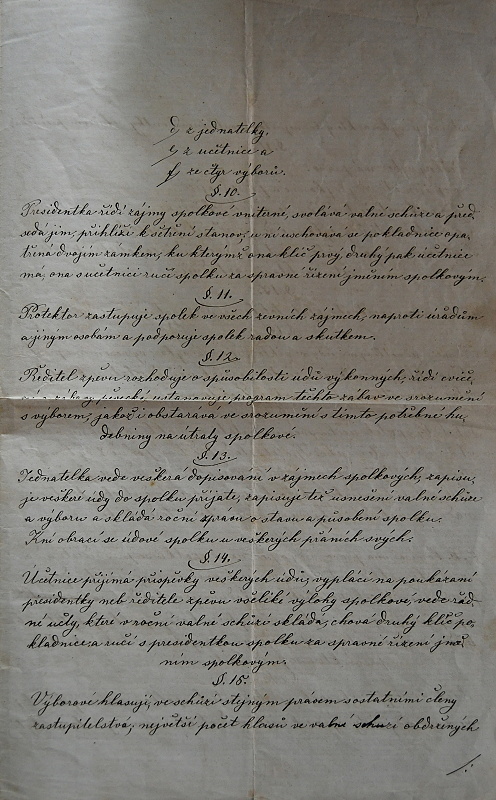 d, z jednatelky,
e, z učetnice a
f, ze čtyr výborů.
§. 10.
Presidentka řídí zájmy spolkové vniterné, svolává valné schůze a před-
sedá jim; přihlíží k šetření stanov; u ní uschovává se pokladnice opa-
třená dvojím zámkem, ku kterýmž ona klíč prvý, druhý pak účetnice
má, ona s účetnicí ručí spolku za spravné řízení jměním spolkovým.
§. 11.
Protektor zastupuje spolek ve všech zevních zájmech, naproti úřadům
a jiným osobám a podporuje spolek radou a skutkem.
§. 12.
Ředitel zpěvu rozhoduje o způsobilosti údů výkonných; řídí cviče-
zábavy pěvecké ustanovuje program těchto zábav ve srozumění
s výborem; jakož i obstarává ve srozumění s tímto potřebné hu-
debniny na útraty spolkové.
§. 13.
Jednatelka vede veškerá dopisování v zájmech spolkových, zapisu-
je veškeré údy do spolku přijaté, zapisuje též usnešení valné schůze
a výboru a skládá roční zprávu o stavu a působení spolku.
K ní obrací se údové spolku u veškerých přáních svých.
§. 14.
Účetnice přijímá příspěvky veškerých údů, vyplácí na poukázaní
presidentky neb ředitele zpěvu všeliké výlohy spolkové, vede řád-
né účty, které v roční valné schůzi skládá, chová druhý klíč po-
kladnice a ručí s presidentkou spolku za spravné řízení jmě-
ním spolkovým.
§. 15.
Výborové hlasují ve schůzi stejným právem s ostatními členy
zastupitelstva, největší počet hlasů ve valné schůzi obdržených